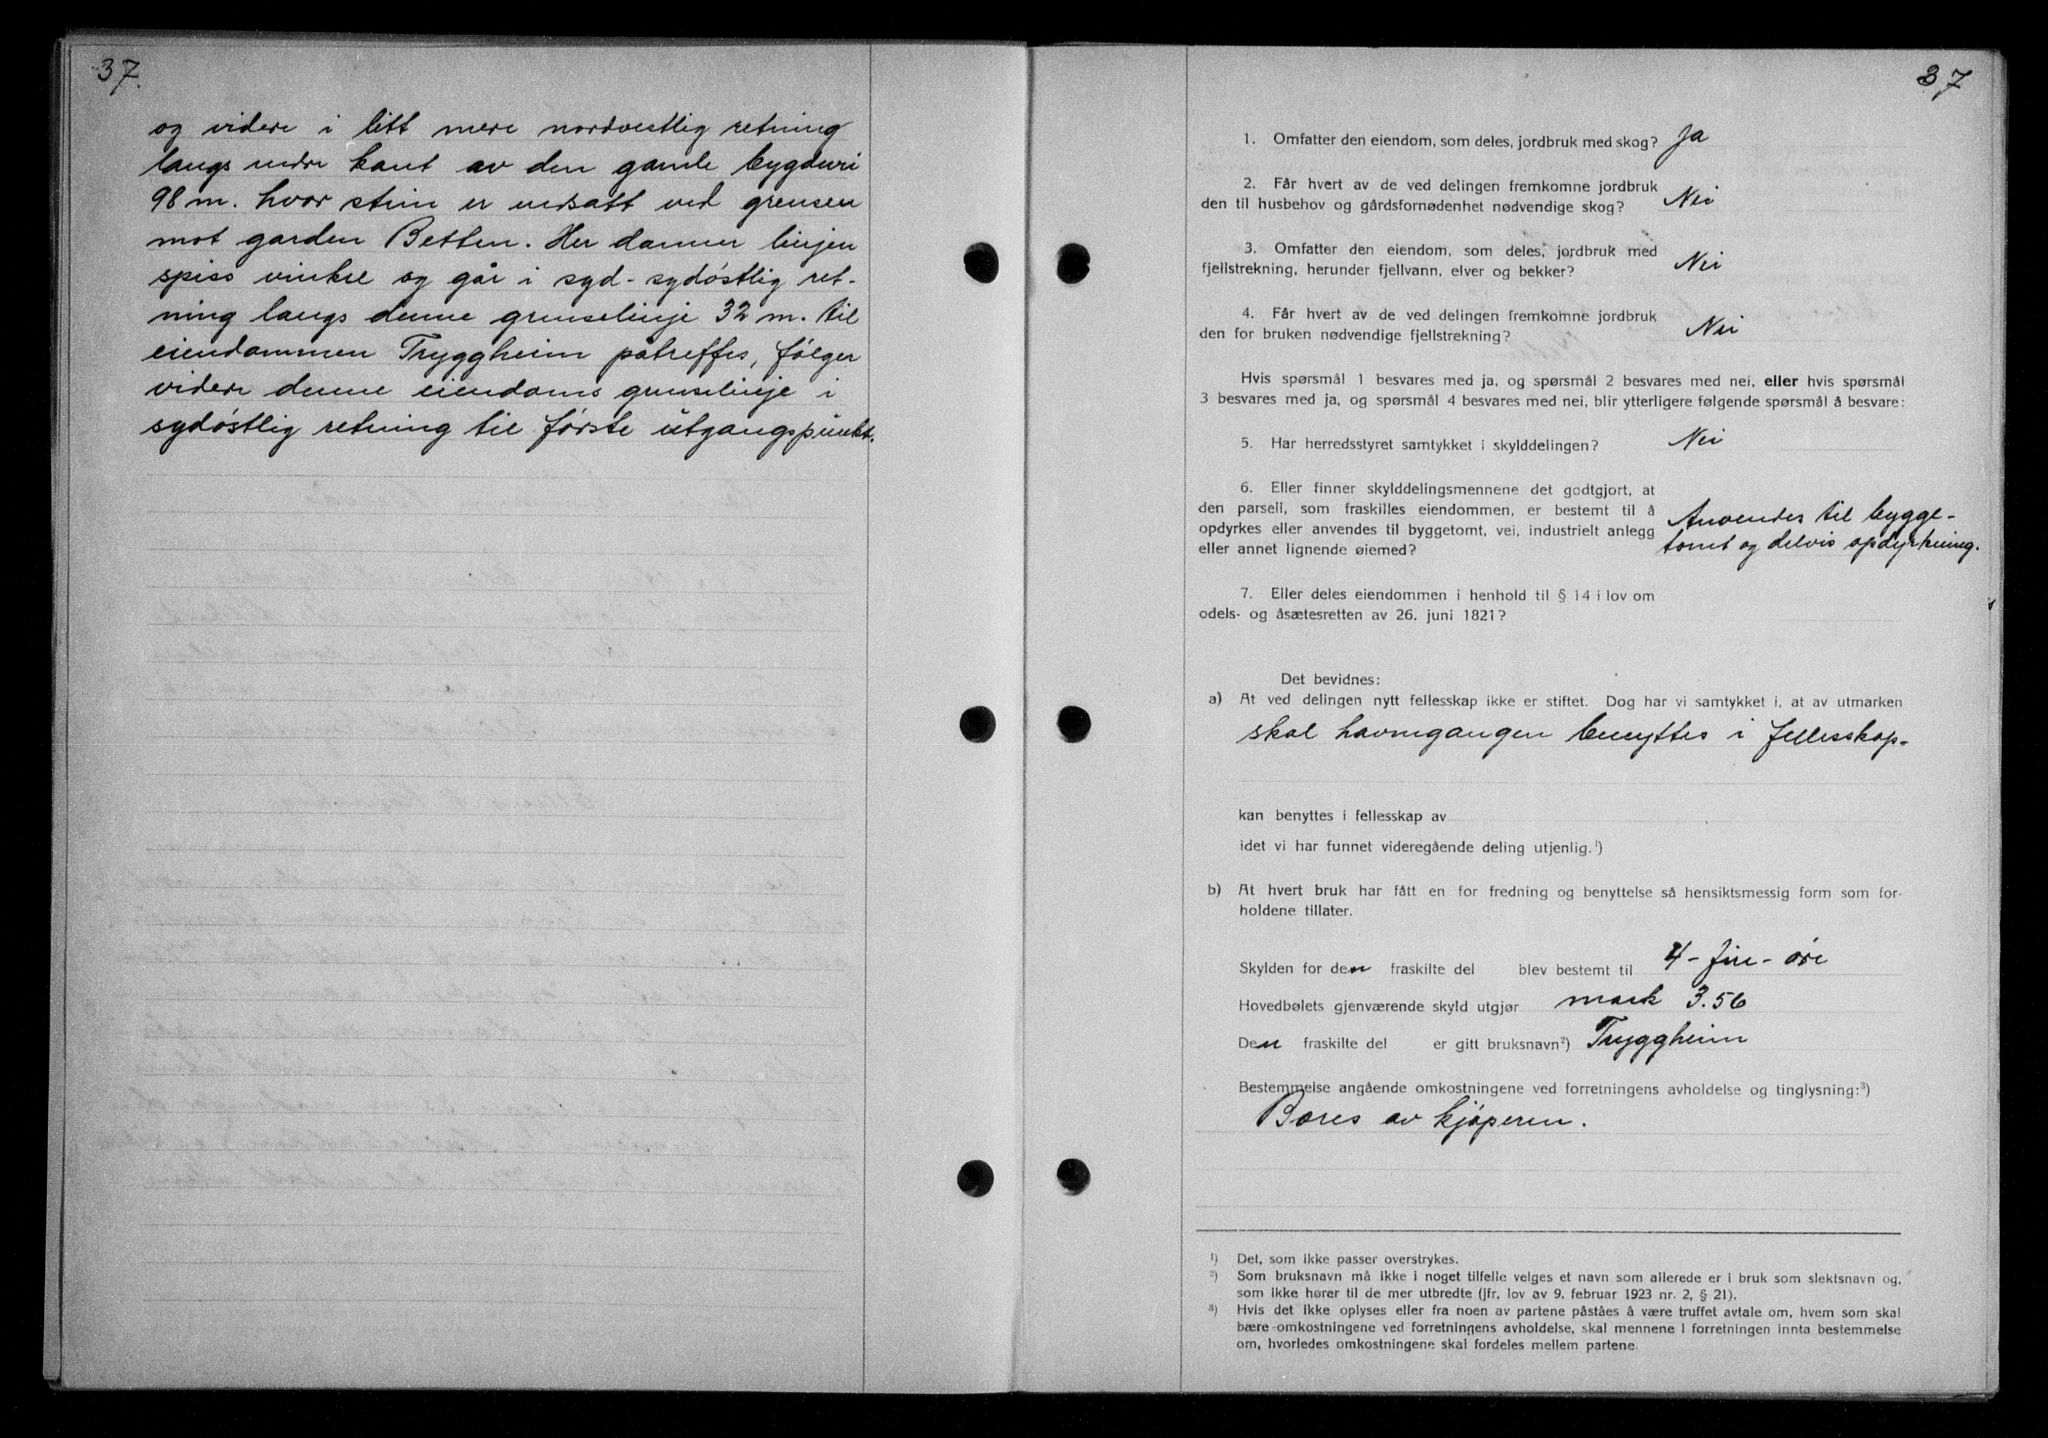 37.
og videre i litt mere nordvestlig retning
langs nedre kant av den gamle bygdevei
98 m. hvor stein er nedsatt ved grensen
mot garden Betten. Her danner linjen
spiss vinkel og går i syd-sydøstlig ret-
ning langs denne grenselinje 32 m. til
eiendommen Tryggheim påtreffes, følger
videre denne eiendoms grenselinje i
sydøstlig retning til første utgangspunkt.
37
1. Omfatter den eiendom, som deles, jordbruk med skog? Ja
2. Får hvert av de ved delingen fremkomne jordbruk
den til husbehov og gårdsfornødenhet nødvendige skog? Nei
3. Omfatter den eiendom, som deles, jordbruk med
fjellstrekning, herunder fjellvann, elver og bekker? Nei
4. Får hvert av de ved delingen fremkomne jordbruk
den for bruken nødvendige fjellstrekning? Nei
Hvis spørsmål 1 besvares med ja, og spørsmål 2 besvares med nei, eller hvis spørsmål
3 besvares med ja, og spørsmål 4 besvares med nei, blir ytterligere følgende spørsmål å besvare:
5. Har herredsstyret samtykket i skylddelingen? Nei
6. Eller finner skylddelingsmennene det godtgjort, at
den parsell, som fraskilles eiendommen, er bestemt til å
opdyrkes eller anvendes til byggetomt, vei, industrielt anlegg
eller annet lignende øiemed?
Anvendes til bygge-
tomt og delvis opdyrkning.
7. Eller deles eiendommen i henhold til § 14 i lov om
odels- og åsætesretten av 26. juni 1821?
Det bevidnes:
a) At ved delingen nytt fellesskap ikke er stiftet. Dog har vi samtykket i, at av utmarken
skal havnegangen benyttes i fellesskap.
kan benyttes i fellesskap av
idet vi har funnet videregående deling utjenlig.¹)
b) At hvert bruk har fått en for fredning og benyttelse så hensiktsmessig form som for-
holdene tillater.
Skylden for den fraskilte del blev bestemt til 4 - fire - øre
Hovedbølets gjenværende skyld utgjør mark 3.56
Den fraskilte del er gitt bruksnavn²) Tryggheim
Bestemmelse angående omkostningene ved forretningens avholdelse og tinglysning:³)
Bæres av kjøperen.
¹) Det, som ikke passer overstrykes.
²) Som bruksnavn må ikke i noget tilfelle velges et navn som allerede er i bruk som slektsnavn og,
som ikke hører til de mer utbredte (jfr. lov av 9. februar 1923 nr. 2, § 21).
³) Hvis det ikke oplyses eller fra noen av partene påståes å være truffet avtale om, hvem som skal
bære omkostningene ved forretningens avholdelse, skal mennene i forretningen innta bestemmelse
om, hvorledes omkostningene skal fordeles mellem partene.